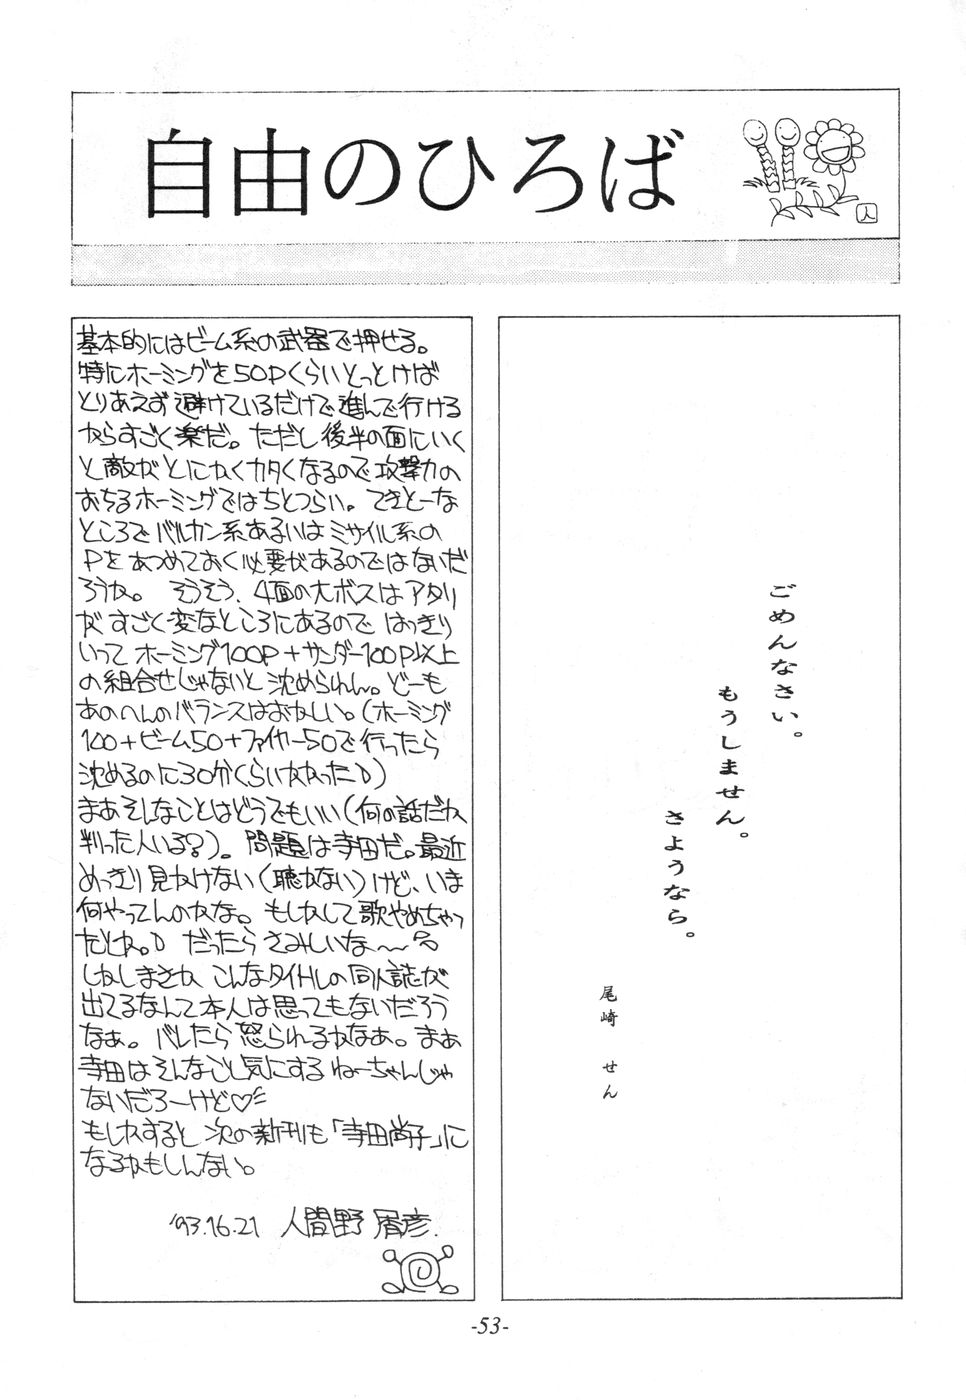 自由のひろば
人
基本的にはビーム系の武器で押せる。
特にホーミングを50Pくらいとっとけば
とりあえず避けているだけで進んで行ける
からすごく楽だ。ただし後半の面にいく
と敵がとにかくカタくなるので攻撃力の
おちるホーミングではちとつらい。てきとーな
ところでバルカン系あるいはミサイル系の
Pをあつめておく必要があるのではないだ
ろうか。そうそう、4面の大ボスはアタリ
がすごく変なところにあるのではっきり
いってホーミング100P+サンダー100P以上
の組合せじゃないと沈められん。どーも
あのへんのバランスはおかしい。(ホーミング
100+ビーム50+ファイヤー50で行ったら
沈めるのに30分くらいかかった)
まあそんなことはどうでもいい(何の話だか
判った人いる?)。問題は寺田だ。最近
めっきり見かけない(聴かない)けど、いま
何やってんのかな。もしかして歌やめちゃっ
たとか。だったらさみしいな〜
しかしまさかこんなタイトルの同人誌が
出てるなんて本人は思ってもないだろう
なぁ。バレたら怒られるかなあ。まぁ
寺田はそんなこと気にするねーちゃんじゃ
ないだろーけど♡
もしかすると次の新刊も「寺田尚子」に
なるかもしんない。
'93.16.21 人間野 屑彦.
ごめんなさい。
もうしません。
さようなら。
尾崎 せん
-53-